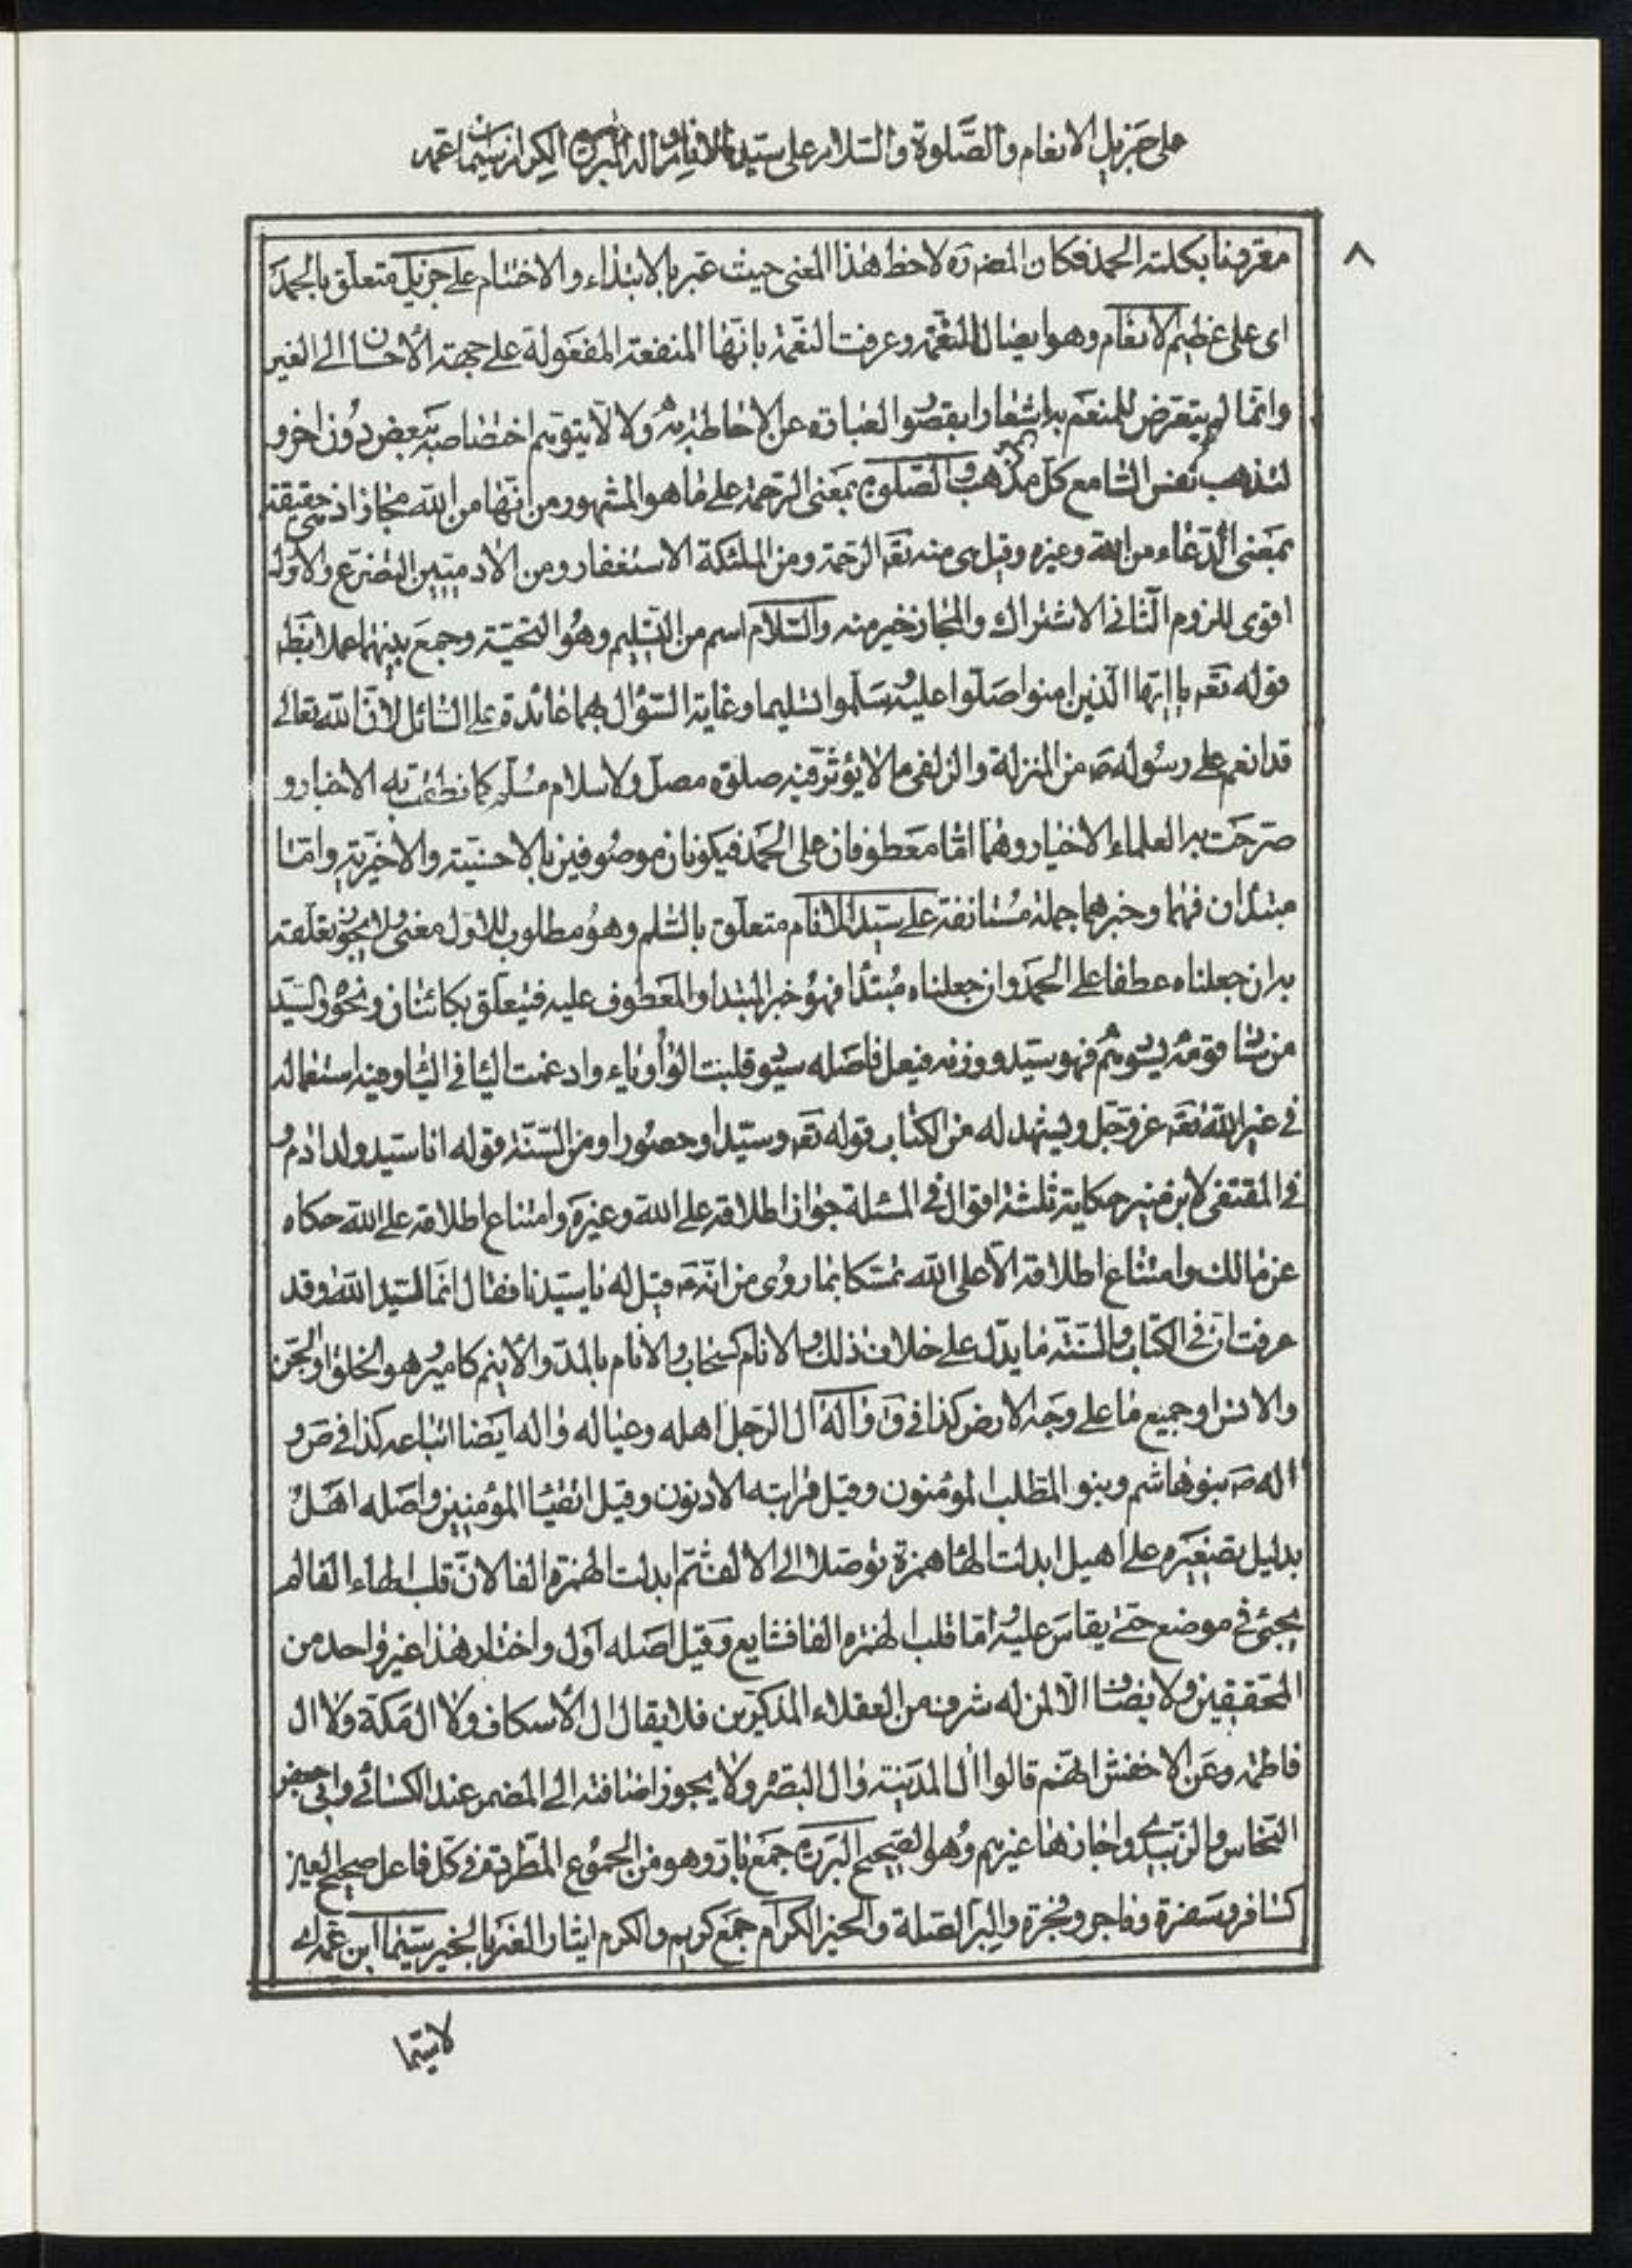 على جزيل الانعام والصّلوة والسّلام على سيّد الانام واله البررة الكرام سيّما ابن عمه
٨
معرفنا بكلمته الحمد فكان المصنف ره لاحظ هذا المعنى حيث عبر بالابتداء والاختتام على جزيل متعلّق بالحمد
اى على عظيم الانعام وهو ايصال النعمة وعرفت النعمة بانّها المنفعة المفعولة على جهة الأحسان الى الغير
وانّما لم يتعرض للمنعم به اشعارا بقصور العبارة عن الاحاطة به ولئلا يتوهم اختصاصه ببعض دون اخر و
لتذهب نفس السّامع كل مذهب والصّلوة بمعنى الرّحمة على ما هو المشهور من انّها من الله مجاز اذ هي حقيقة
بمعنى الدّعاء من الله وغيره وقيل هى منه تعه الرّحمة ومن الملئكة الاستغفار ومن الادميّين التضرّع والاوّل
اقوى للزوم الثّانى الاشتراك والمجاز خير منه والسّلام اسم من التّسليم وهو التحيّة وجمع بينهما عملا بظ
قوله تعه يا ايّها الّذين امنوا صلّوا عليه وسلّموا تسليما وغاية السّؤال بهما عائدة على السّائل لانّ الله تعالى
قد انعم على رسوله ص من المنزلة والزلفى ما لا يؤثّر فيه صلوة مصلّ ولا سلام مسلّم كما نطقت به الاخبار و
صرّحت به العلماء الاخيار وهما امّا معطوفان على الحمد فيكونان موصوفين بالاحسنيّة والاخيريّة وامّا
مبتدان فهما وخبرهما جملة مستانفة على سيّد الانام متعلّق بالسّلم وهو مطلوب للاوّل معنى ولا يجوز تعلّقه
به ان جعلناه عطفا على الحمد وان جعلناه مبتدأ فهو خبر المبتدا والمعطوف عليه فيتعلّق بكائنان ونحوه والسيّد
من ساد قومه يسودهم فهو سيّد ووزنه فيعل فاصله سيود قلبت الواو ياء وادغمت اليا في اليا وفيه استعماله
في غير الله تعه عزّ وجلّ ويشهد له من الكتاب قوله تعه وسيّدا وحصورا ومن السّنة قوله انا سيّد ولد ادم و
في المقتفى لابن منير حكاية ثلثة اقوال في المسئلة جواز اطلاقه على الله وغيره وامتناع اطلاقه على الله حكاه
عن مالك وامتناع اطلاقه الّا على الله تمسّكا بما روى من انّه ص قيل له يا سيّدنا فقال انّما السّيد الله وقد
عرفت ان في الكتاب والسّنّة ما يدّل على خلاف ذلك والانام كسحاب والانام بالمدّ والأنيم كامير هو الخلق او الجن
والانس او جميع ما على وجه الارض كذا في ق واله ال الرّجل اهله وعياله واله ايضا اتباعه كذا في ص و
اله ص بنو هاشم وبنو المطّلب المؤمنون وقيل قرابته الادنون وقيل اتقياء المؤمنين واصله اهل
بدليل تصغيره على اهيل ابدلت الهاء همزة توصّلا الى الالف ثمّ ابدلت الهمزة الفا لانّ قلب الهاء الفا لم
يجئ في موضع حتّى يقاس عليه امّا قلب الهمزة الفا فشايع وقيل اصله اول واختار هذا غير واحد من
المحقّقين ولا يضاف الّا لمن له شرف من العقلاء المذكّرين فلا يقال ال الأسكاف ولا ال مكة ولا ال
فاطمة وعن الاخفش انهم قالوا ال المدينة وال البصرة ولا يجوز اضافته الى المضمر عند الكسائى وابى جعفر
النحّاس والزبيدى واجازها غيرهم وهو الصّحيح البررة جمع بارّ وهو من الجموع المطّردة في كلّ فاعل صحيح العين
كسافر وسفرة وفاجر وفجرة والبر الصلة والخير الكرام جمع كريم والكرم ايثار الغير بالخير سيّما ابن عمه اى
لاسيّما